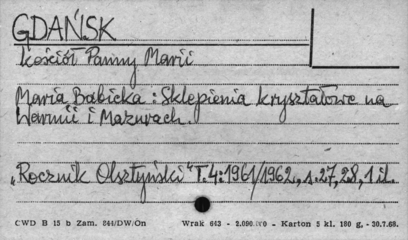 GDAŃSK
Kościół Panny Marii
Maria Babicka : Sklepienia kryształowe na
Warmii i Mazurach.
„Rocznik Olsztyński" T.4:1961/1962., s.27,28, 1 il.
CWD B 15 b Zam. 844/DW/On Wrak 643 - 2.000.000 - Karton 5 kl. 180 g, - 30.7.68.